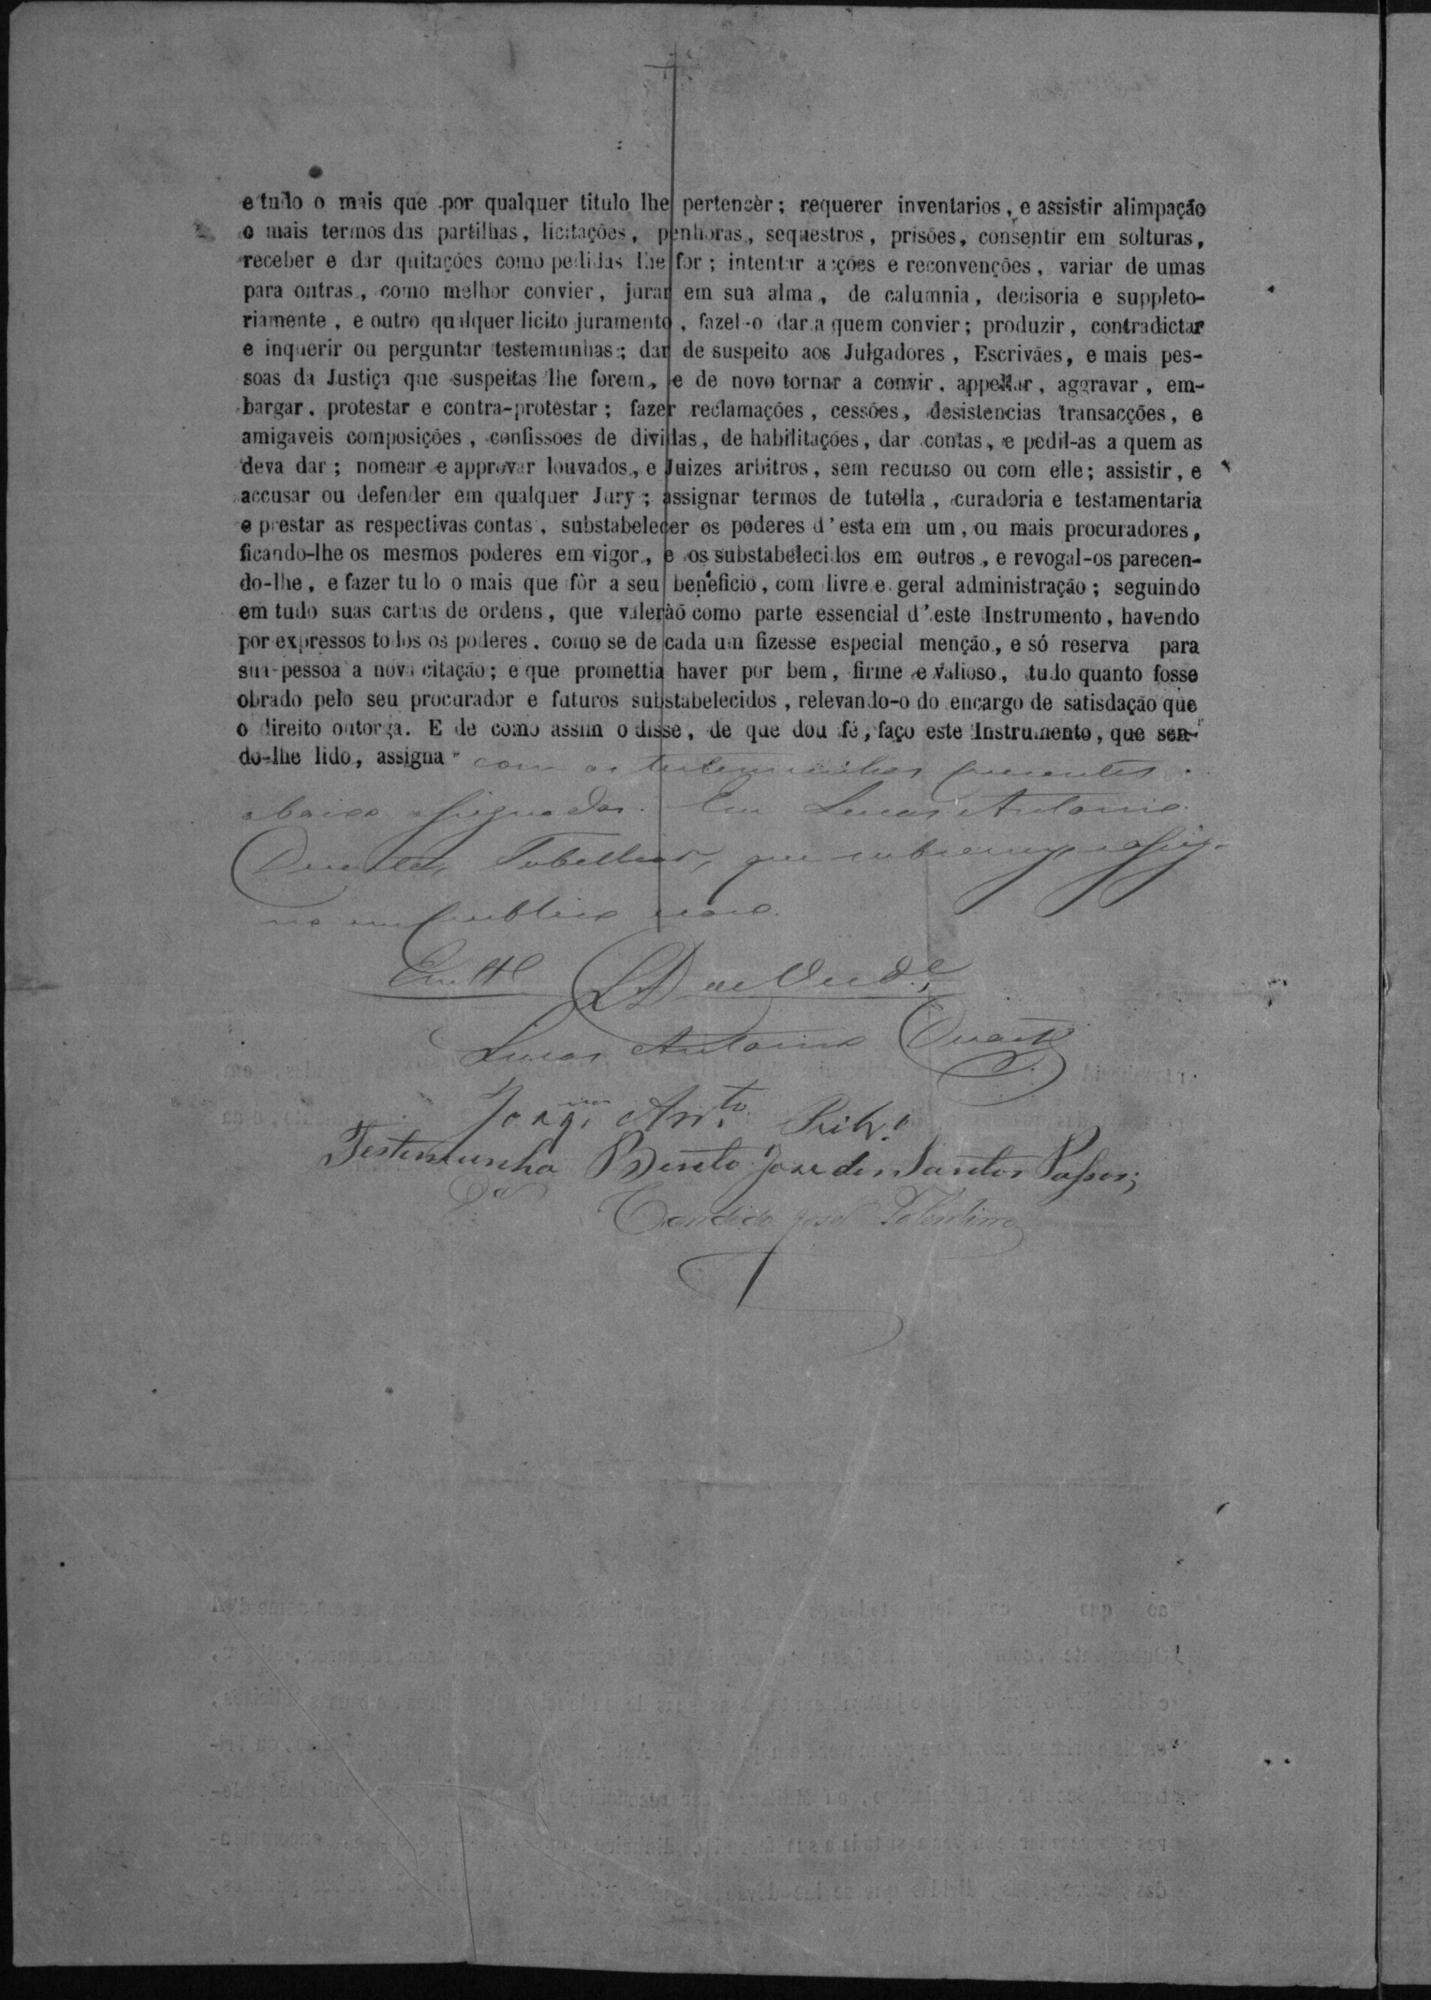 e tudo o mais que por qualquer titulo lhe pertencèr; requerer inventarios, e assistir alimpação
e mais termos das partilhas, licitações, penhoras, sequestros, prisões, consentir em solturas,
receber e dar quitações como pedidas lhe for; intentar acções e reconvenções, variar de umas
para outras, como melhor convier, jurar em sua alma, de calumnia, decisoria e suppleto-
riamente, e outro qualquer licito juramento, fazel-o dar a quem convier; produzir, contradictar
e inquerir ou perguntar testemunhas; dar de suspeito aos Julgadores, Escrivães, e mais pes-
soas da Justiça que suspeitas lhe forem, e de novo tornar a convir, appellar, aggravar, em-
bargar, protestar e contra-protestar; fazer reclamações, cessões, desistencias transacções, e
amigaveis composições, confissões de dividas, de habilitações, dar contas, e pedil-as a quem as
deva dar; nomear e approvar louvados, e Juizes arbitros, sem recurso ou com elle; assistir, e
accusar ou defender em qualquer Jury; assignar termos de tutella, curadoria e testamentaria
e prestar as respectivas contas, substabelecer os poderes d'esta em um, ou mais procuradores,
ficando-lhe os mesmos poderes em vigor, e os substabelecidos em outros, e revogal-os parecen-
do-lhe, e fazer tudo o mais que fôr a seu beneficio, com livre e geral administração; seguindo
em tudo suas cartas de ordens, que valeráõ como parte essencial d'este Instrumento, havendo
por expressos todos os poderes, como se de cada um fizesse especial menção, e só reserva para
sua pessoa a nova citação; e que promettia haver por bem, firme e valioso, tudo quanto fosse
obrado pelo seu procurador e futuros substabelecidos, relevando-o do encargo de satisdação que
o direito outorga. E de como assim o disse, de que dou fé, faço este Instrumento, que sen-
do-lhe lido, assigna com as testemunhas presentes
abaixo assignados. Eu Lucas Antonio
Duarte, Tabellião, que subscrevy e assig-
no em publico e raso.
Em tto de Verd.e
Lucas Antonio Duarte
Joaqim Anto. Ribro
Testemunha Bento Jose dos Santos Passos;
Da Candido José Tolentino